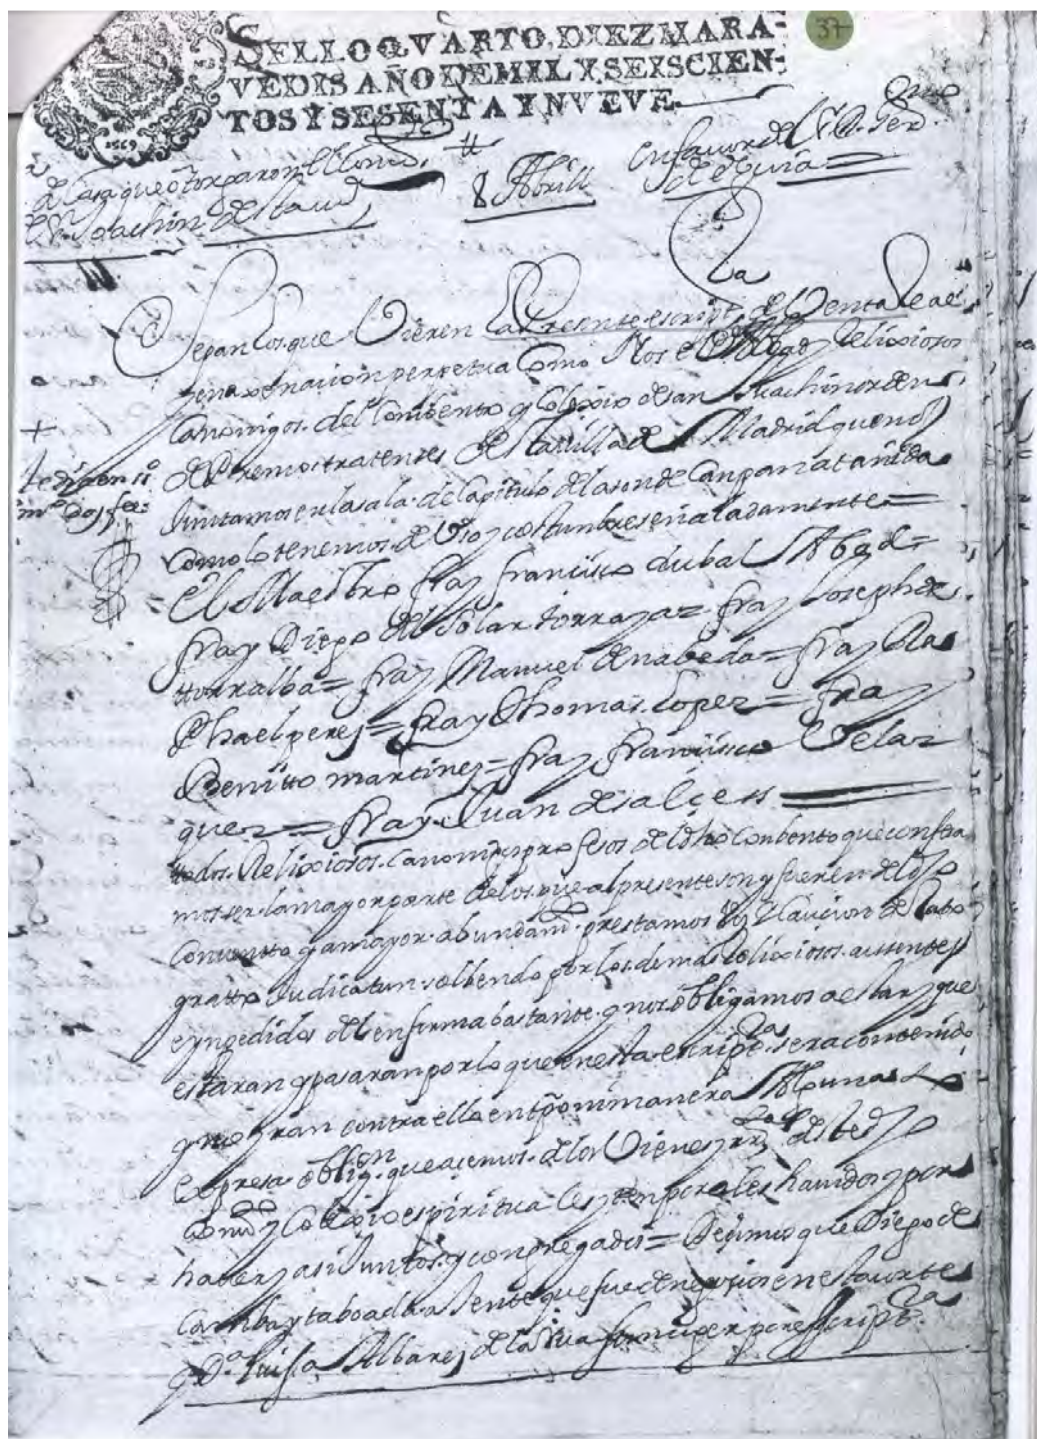 37
SELLO QVARTO, DIEZ MARA-
VEDIS AÑO DE MIL Y SEISCIEN-
TOS Y SESENTA Y NVEVE.
1669
de Casa que otorgaron el Conv.to
de S.n Joachin desta v.d
8 Abrill
en favor de
de eguia
Sepan los que Vieren la Presente escript.ra de Venta Real
yenaxenacion perpetua Como Nos el Abbad y Relixiosos
Canonigos del Combento y Colexio de san Juachin orden
de Premostratenses desta villa de Madrid que nos
Juntamos en la sala de Capitulo della son de Canpana tanida
como lo tenemos de Uso y costumbre señaladamente
El Maestro fray francisco dubal Abad =
fray Diego del Solar torraza = fray Joseph de
torralba = fray Manuel de nabeda = fray Ra
Phael perez = fray Thomas Lopez = fray
Benitto martinez = fray francisco Velaz
quez = fray Juan de salçes
todos Relixiosos canonigos profesos del dho Conbento que confesa
mos ser la mayor parte de los que al presente son y fueren del dho
Convento y a mayor abundam.to prestamos Voz y Caucion de Rato
gratto Judicatun solbendo por los demas Relixiosos ausentes
eynpedidos del en forma bastante y nos obligamos a estar y que
estaran y pasaran por lo que en esta escript.ra sera contenido
y no yran contra ello en tpo ni manera Alguna so
expresa oblig.on que açemos de los Vienes y R.tas deste dho
Conv.to y Colexio espirituales y temporales havidos y por
haver y asi Juntos y congregados = Decimos que Diego de
Camba y taboada ajente que fue de negocios en esta corte
y D.a Luisa Albarez de la Rua su muger por escript.ra